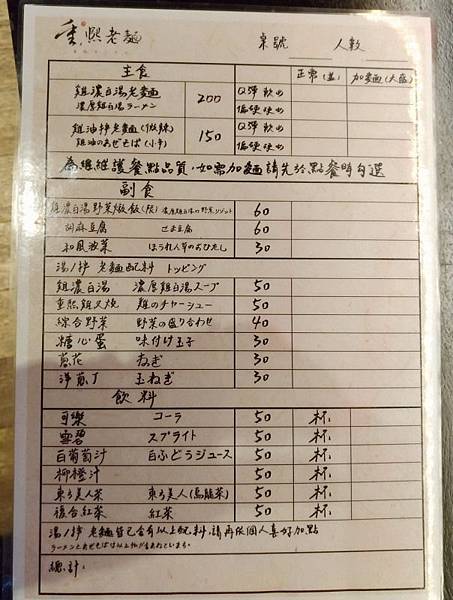 熙老麵 桌號 人數
主食 正常(並) 加麵(大盛)
雞濃白湯老麵 200 Q彈 軟め
濃厚鶏白湯ラーメン 偏硬 硬め
雞油拌老麵(微辣) 150 Q彈 軟め
鶏油のあぜそば(小辛) 偏硬 硬め
為維護餐點品質,如需加麵請先於點餐時勾選
副食
雞濃白湯野菜燉飯(限) 濃厚鶏白湯の野菜リゾット 60
胡麻豆腐 ごま豆腐 60
和風波菜 ほうれん草のおひたし 30
湯/拌 老麵配料 トッピング
雞濃白湯 濃厚鶏白湯スープ 50
重熙雞叉燒 鶏のチャーシュー 50
綜合野菜 野菜の盛り合わせ 40
糖心蛋 味付け玉子 30
蔥花 ねぎ 30
洋蔥丁 玉ねぎ 30
飲料
可樂 コーラ 50 杯
雪碧 スプライト 50 杯
白葡萄汁 白ぶどうジュース 50 杯
柳橙汁 50 杯
東方美人茶 東方美人(烏龍茶) 50 杯
復合紅茶 紅茶 50 杯
湯/拌 老麵皆已含有以上配料,請再依個人喜好加點
ラーメンとあぜそばは以上物が含まれています。
總計: